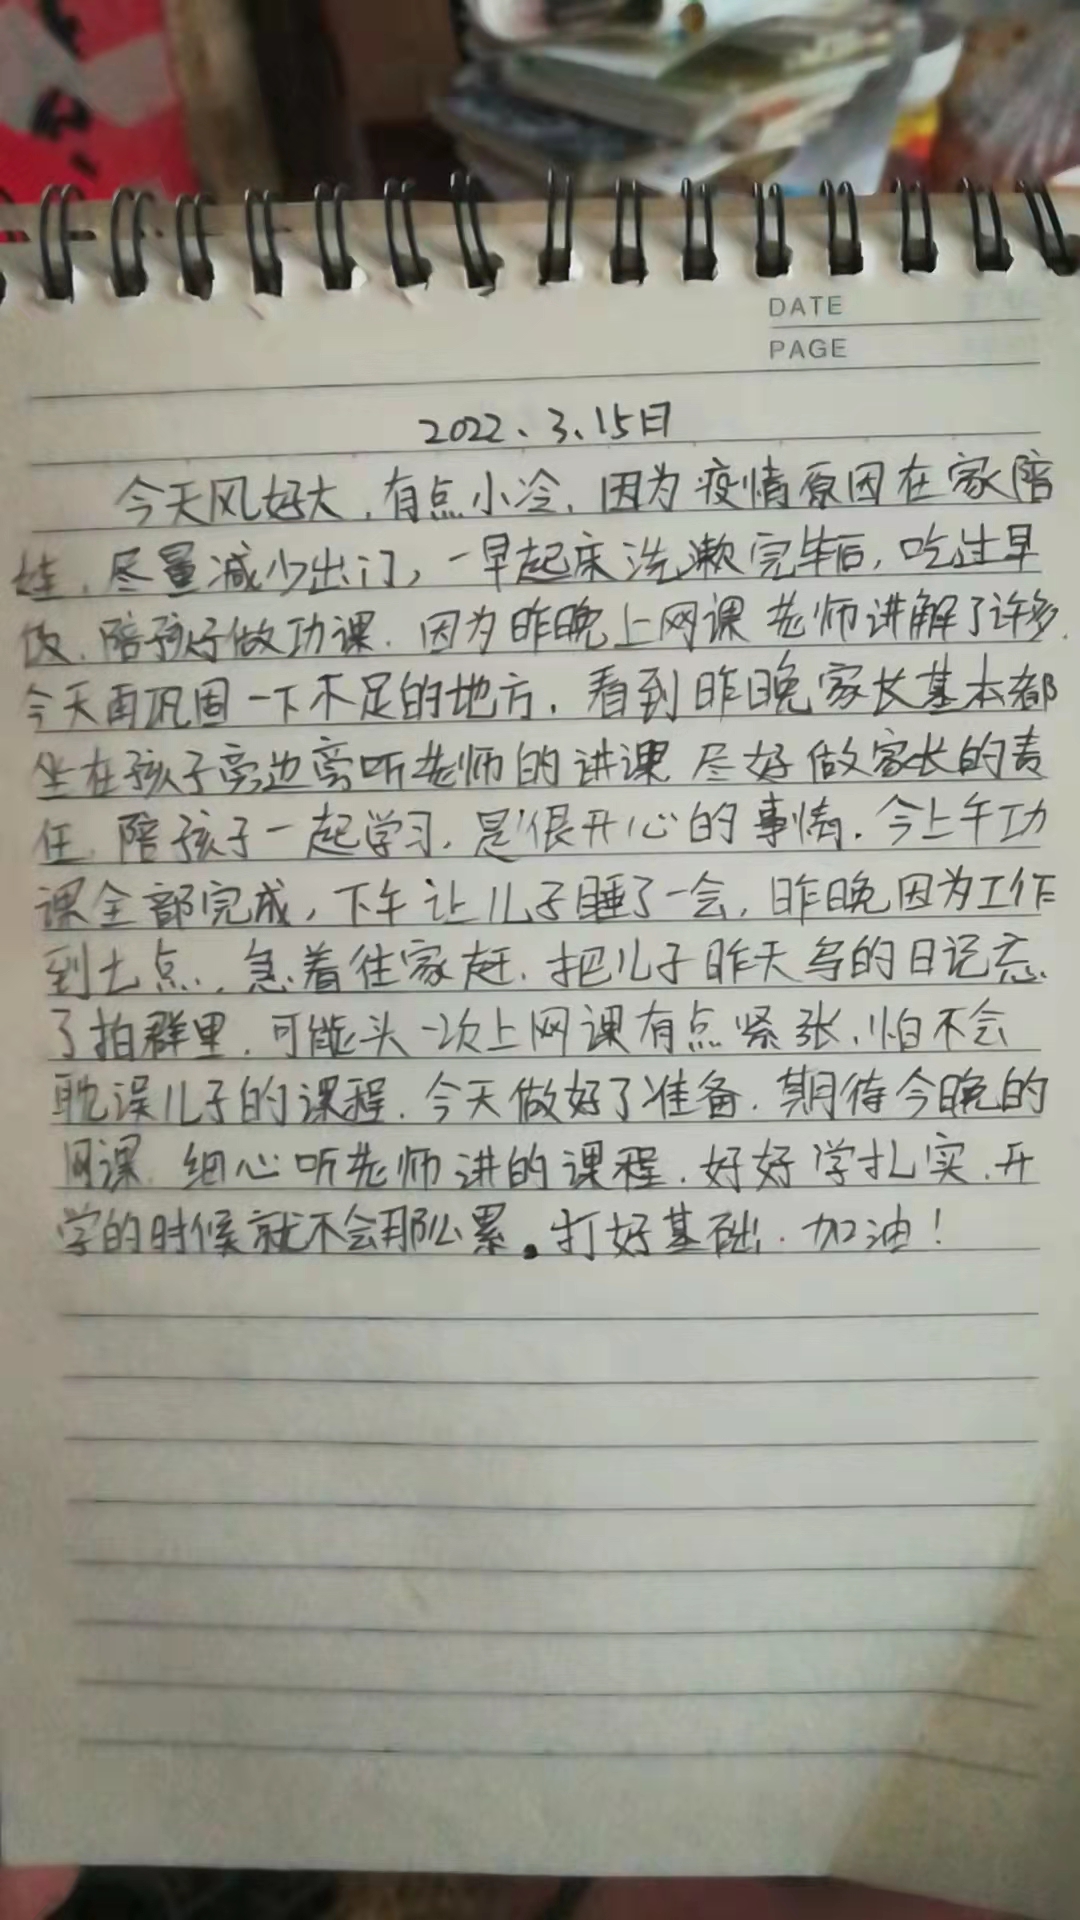 DATE
PAGE
2022、3、15日
今天风好大，有点小冷，因为疫情原因在家陪
娃，尽量减少出门，一早起床洗漱完毕后，吃过早
饭，陪孩子做功课，因为昨晚上网课 老师讲解了许多，
今天再巩固一下不足的地方，看到昨晚家长基本都
坐在孩子旁边旁听老师的讲课 尽好做家长的责
任，陪孩子一起学习，是很开心的事情，今上午功
课全部完成，下午让儿子睡了一会，昨晚因为工作
到七点，急着往家赶，把儿子昨天写的日记忘
了拍群里，可能头一次上网课有点紧张，怕不会
耽误儿子的课程，今天做好了准备，期待今晚的
网课，细心听老师讲的课程，好好学扎实，开
学的时候就不会那么累。打好基础，加油！